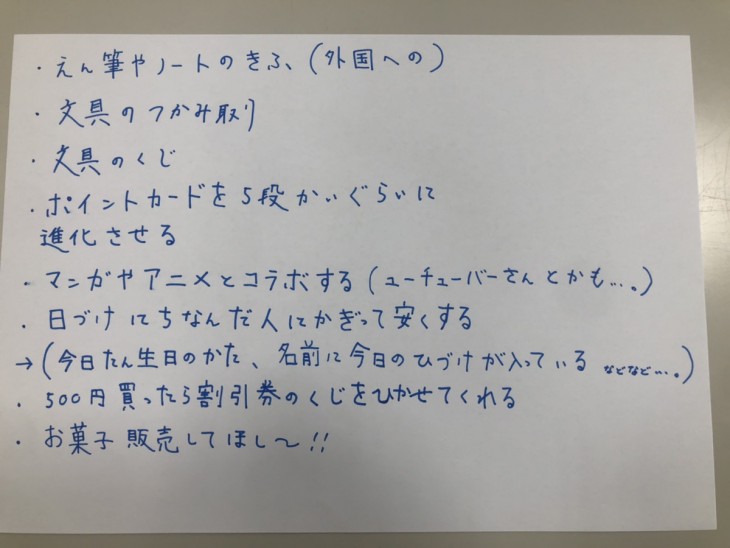 ・えん筆やノートのきふ、(外国への)
・文具のつかみ取り
・文具のくじ
・ポイントカードを5段かいぐらいに
進化させる
・マンガやアニメとコラボする(ユーチューバーさんとかも…。)
・日づけにちなんだ人にかぎって安くする
→(今日たん生日のかた、名前に今日のひづけが入っている などなど…。)
・500円買ったら割引券のくじをひかせてくれる
・お菓子販売してほし〜!!